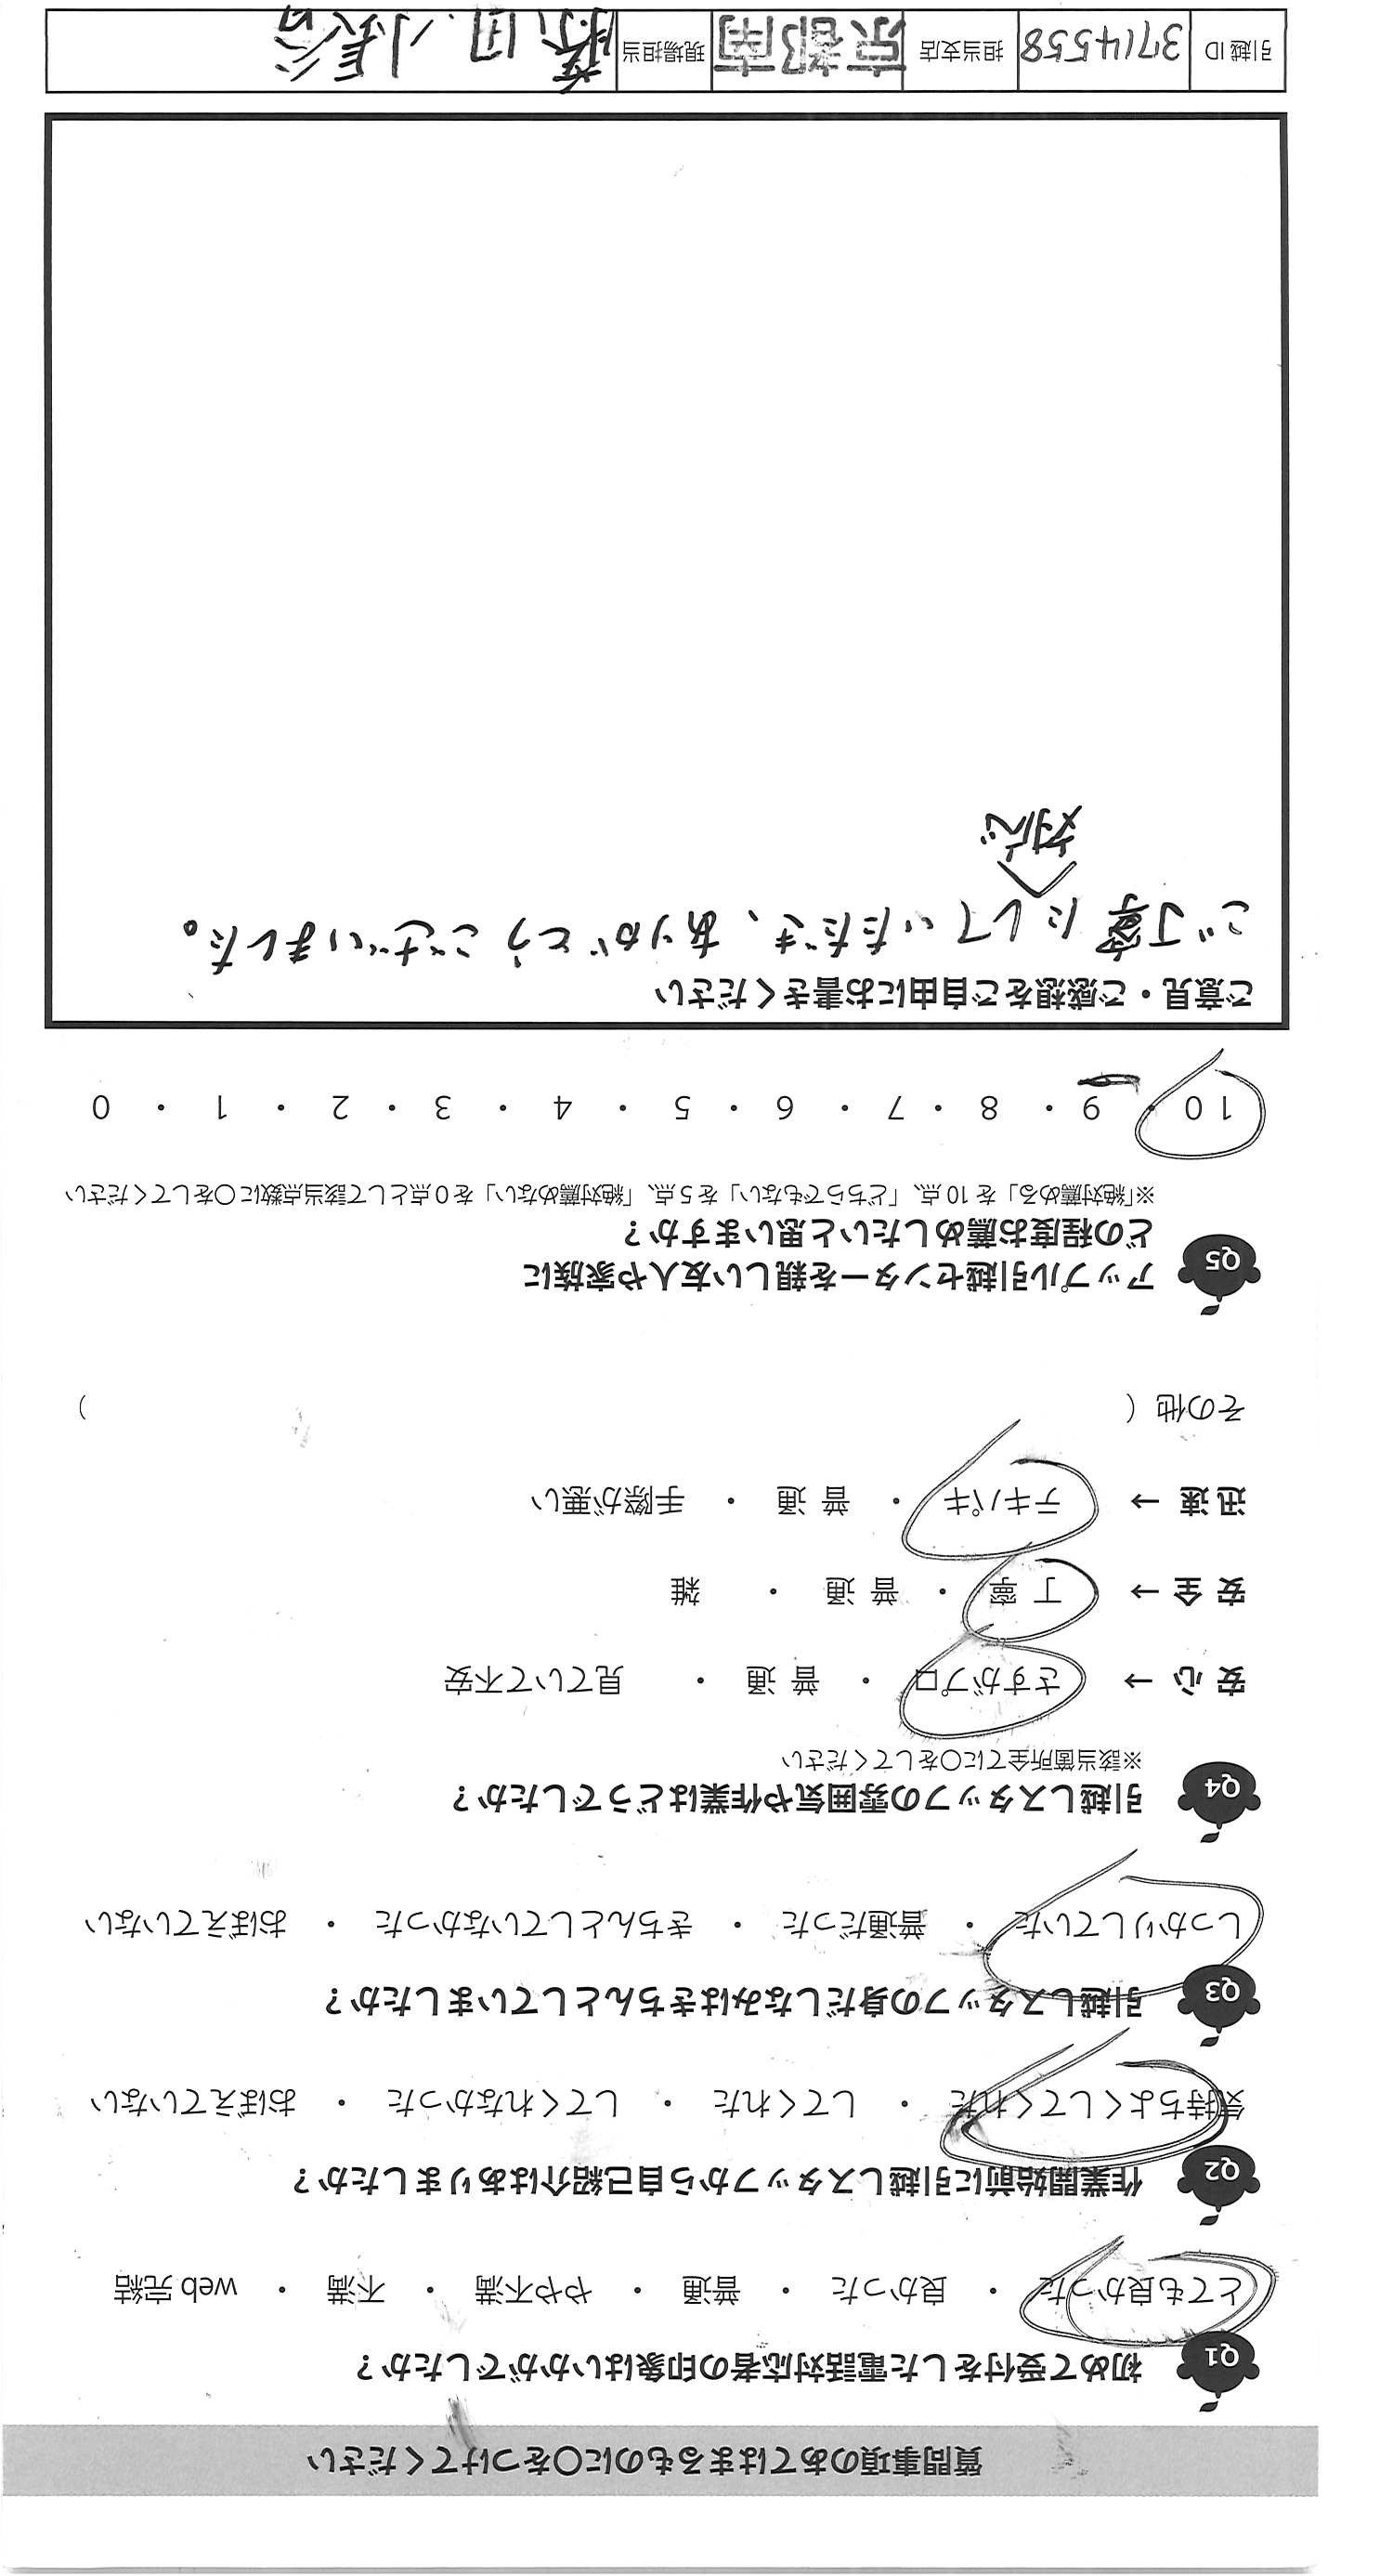 質問事項のあてはまるものに○をつけてください
Q1 初めて受付をした電話対応者の印象はいかがでしたか？
とても良かった ・ 良かった ・ 普通 ・ やや不満 ・ 不満 ・ web 完結
Q2 作業開始前に引越しスタッフから自己紹介はありましたか？
気持ちよくしてくれた ・ してくれた ・ してくれなかった ・ おぼえていない
Q3 引越しスタッフの身だしなみはきちんとしていましたか？
しっかりしていた ・ 普通だった ・ きちんとしていなかった ・ おぼえていない
Q4 引越しスタッフの雰囲気や作業はどうでしたか？
※該当箇所全てに○をしてください
安 心 → さすがプロ ・ 普 通 ・ 見ていて不安
安 全 → 丁 寧 ・ 普 通 ・ 雑
迅 速 → テキパキ ・ 普 通 ・ 手際が悪い
その他（ ）
Q5 アップル引越センターを親しい友人や家族に
どの程度お薦めしたいと思いますか？
※「絶対薦める」を 10 点、「どちらでもない」を 5 点、「絶対薦めない」を 0 点として該当点数に○をしてください
10 ・ 9 ・ 8 ・ 7 ・ 6 ・ 5 ・ 4 ・ 3 ・ 2 ・ 1 ・ 0
ご意見・ご感想をご自由にお書きください
ご丁寧にしていただき、ありがとうございました。
対応
引越 ID 3714558 担当支店 京都南 現場担当 藤田. 小長谷